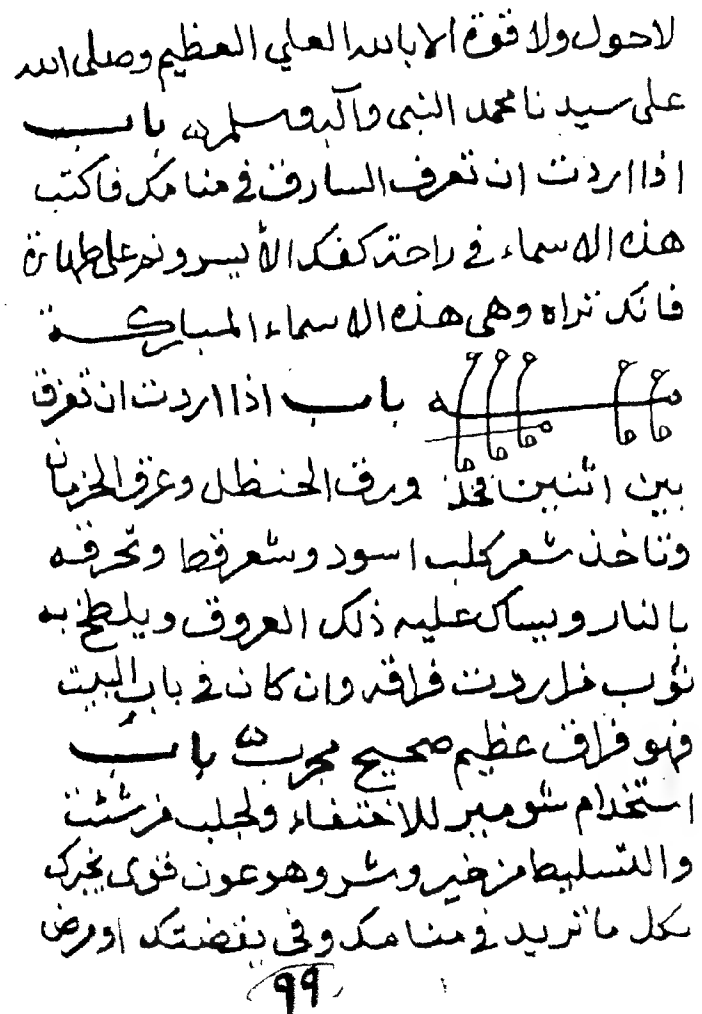 لا حول ولا قوة الا بالله العلي العظيم وصلى الله
على سيدنا محمد النبى وآله وسلم باب
اذا اردت ان تعرف السارق في منامك فاكتب
هذه الاسماء في راحة كفك الأيسر ونم على طهارة
فانك تراه وهى هذه الاسماء المباركة
باب اذا اردت ان تفرق
بين اثنين فخذ ورق الحنظل وعرق
وتاخذ شعر كلب اسود وشعر قط وتحرقه
بالنار ويساك عليه ذلك العروق ويلطخ به
ثوب من اردت فراقه وان كان في باب البيت
فهو فراق عظيم صحيح مجرب باب
استخدام شومير للاختفاء ولجلب من شئت
والتسليط من خير وشر وهو عون قوى يخبرك
بكل ما تريد في منامك وفي يقضتك او مرض
٩٩